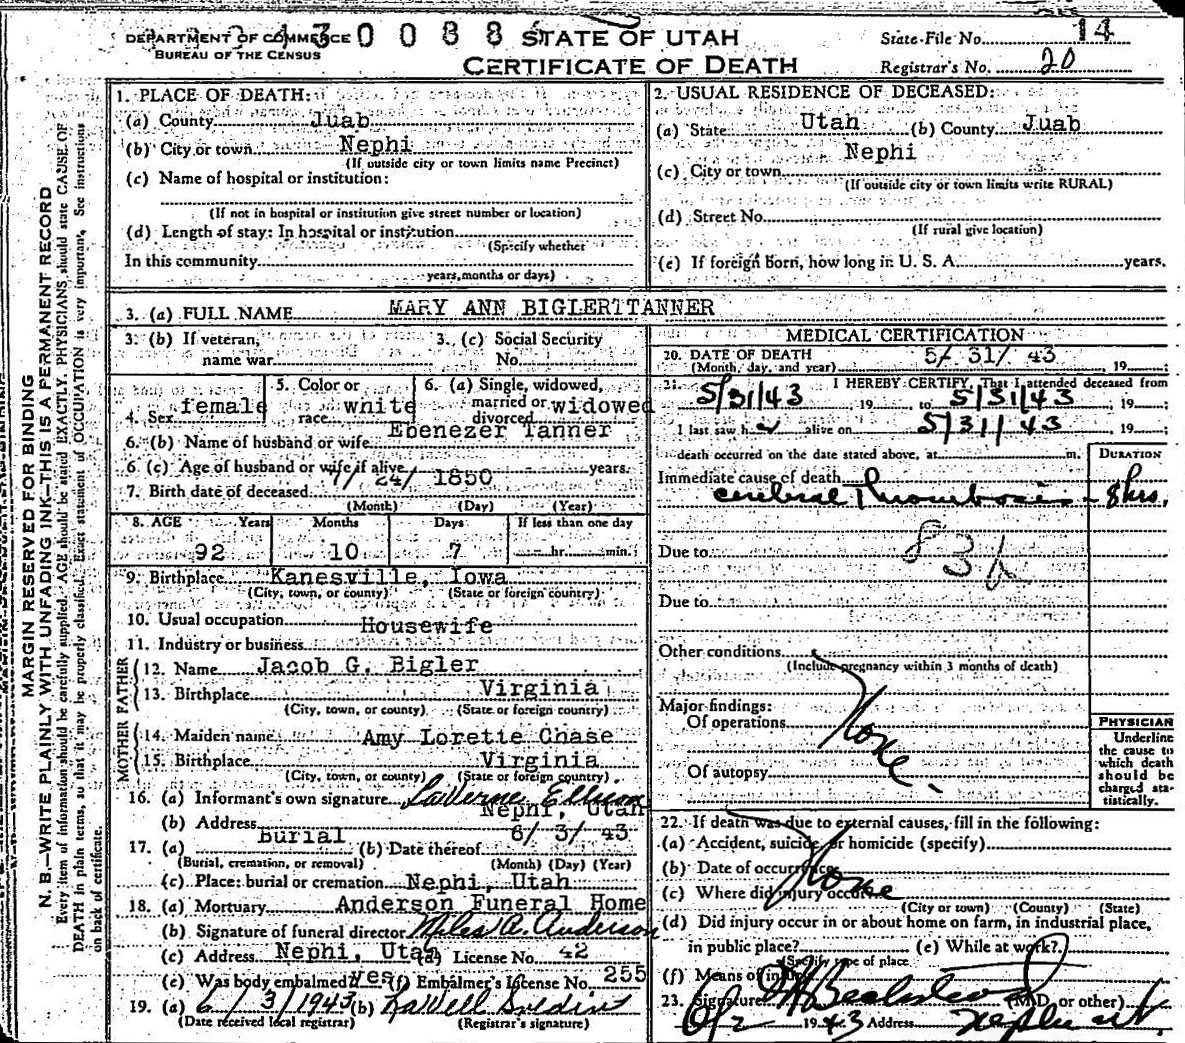 DEPARTMENT OF COMMERCE
BUREAU OF THE CENSUS
STATE OF UTAH
CERTIFICATE OF DEATH
State File No. 14
Registrar's No. 20
MARGIN RESERVED FOR BINDING
N. B.—WRITE PLAINLY WITH UNFADING INK—THIS IS A PERMANENT RECORD
Every item of information should be carefully supplied. AGE should be stated EXACTLY. PHYSICIANS should state CAUSE OF
DEATH in plain terms, so that it may be properly classified. Exact statement of OCCUPATION is very important. See instructions
on back of certificate.
1. PLACE OF DEATH:
(a) County Juab
(b) City or town Nephi
(If outside city or town limits name Precinct)
(c) Name of hospital or institution:
(If not in hospital or institution give street number or location)
(d) Length of stay: In hospital or institution
(Specify whether
In this community
years, months or days)
2. USUAL RESIDENCE OF DECEASED:
(a) State Utah (b) County Juab
Nephi
(c) City or town
(If outside city or town limits write RURAL)
(d) Street No.
(If rural give location)
(e) If foreign born, how long in U. S. A. years.
3. (a) FULL NAME MARY ANN BIGLER TANNER
3. (b) If veteran, name war
3. (c) Social Security No.
4. Sex female
5. Color or race white
6. (a) Single, widowed, married or divorced widowed
6. (b) Name of husband or wife Ebenezer Tanner
6 (c) Age of husband or wife if alive years.
7. Birth date of deceased 7/ 24/ 1850
(Month) (Day) (Year)
8. AGE Years Months Days If less than one day
92 10 7 hr. min.
9. Birthplace Kanesville, Iowa
(City, town, or county) (State or foreign country)
10. Usual occupation Housewife
11. Industry or business
FATHER
12. Name Jacob G. Bigler
13. Birthplace Virginia
(City, town, or county) (State or foreign country)
MOTHER
14. Maiden name Amy Lorette Chase
15. Birthplace Virginia
(City, town, or county) (State or foreign country)
16. (a) Informant's own signature LaVerne Ellison
(b) Address Nephi, Utah
17. (a) Burial (b) Date thereof 6/ 3/ 43
(Burial, cremation, or removal) (Month) (Day) (Year)
(c) Place: burial or cremation Nephi, Utah
18. (a) Mortuary Anderson Funeral Home
(b) Signature of funeral director Miles A. Anderson
(c) Address Nephi, Utah (d) License No. 42
(e) Was body embalmed? yes (f) Embalmer's License No. 255
19. (a) 6/3/1943 (b)
(Date received local registrar) (Registrar's signature)
MEDICAL CERTIFICATION
20. DATE OF DEATH 5/ 31/ 43
(Month, day, and year) 19
21. I HEREBY CERTIFY, That I attended deceased from
5/31/43 19 to 5/31/43, 19 ;
I last saw her alive on 5/31/43, 19 ;
death occurred on the date stated above, at m.
DURATION
Immediate cause of death
cerebral Thrombosis - 8 hrs.
Due to 83b
Due to
Other conditions
(Include pregnancy within 3 months of death)
Major findings:
Of operations None.
Of autopsy
PHYSICIAN
Underline
the cause to
which death
should be
charged sta-
tistically.
22. If death was due to external causes, fill in the following:
(a) Accident, suicide, or homicide (specify)
(b) Date of occurrence
None
(c) Where did injury occur?
(City or town) (County) (State)
(d) Did injury occur in or about home on farm, in industrial place,
in public place? (e) While at work?
(Specify type of place
(f) Means of injury
23. Signature (M.D. or other)
6/2 1943 Address Nephi Ut.